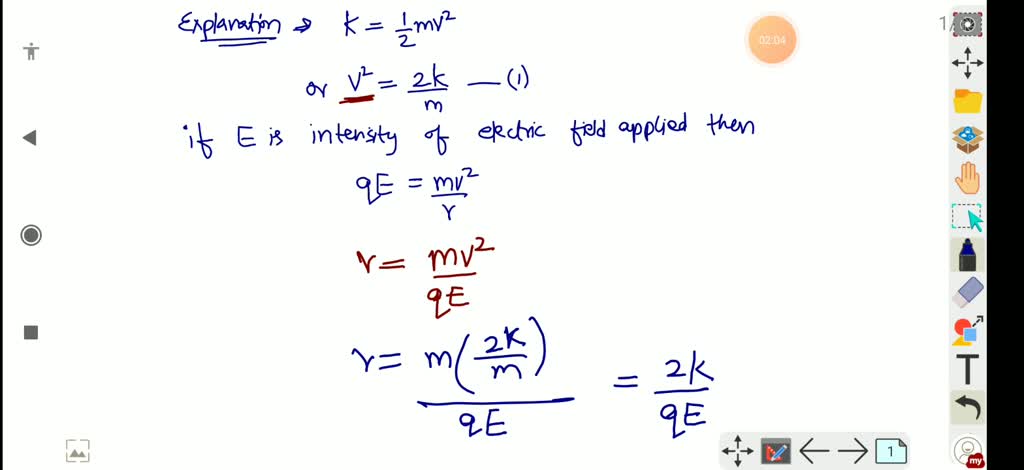 Explanation → K = 1/2 mv²
or v² = 2k/m —(1)
if E is intensity of electric field applied then
qE = mv²/r
r = mv²/qE
r = m(2k/m)/qE = 2k/qE
02:04
1/
T
1
my